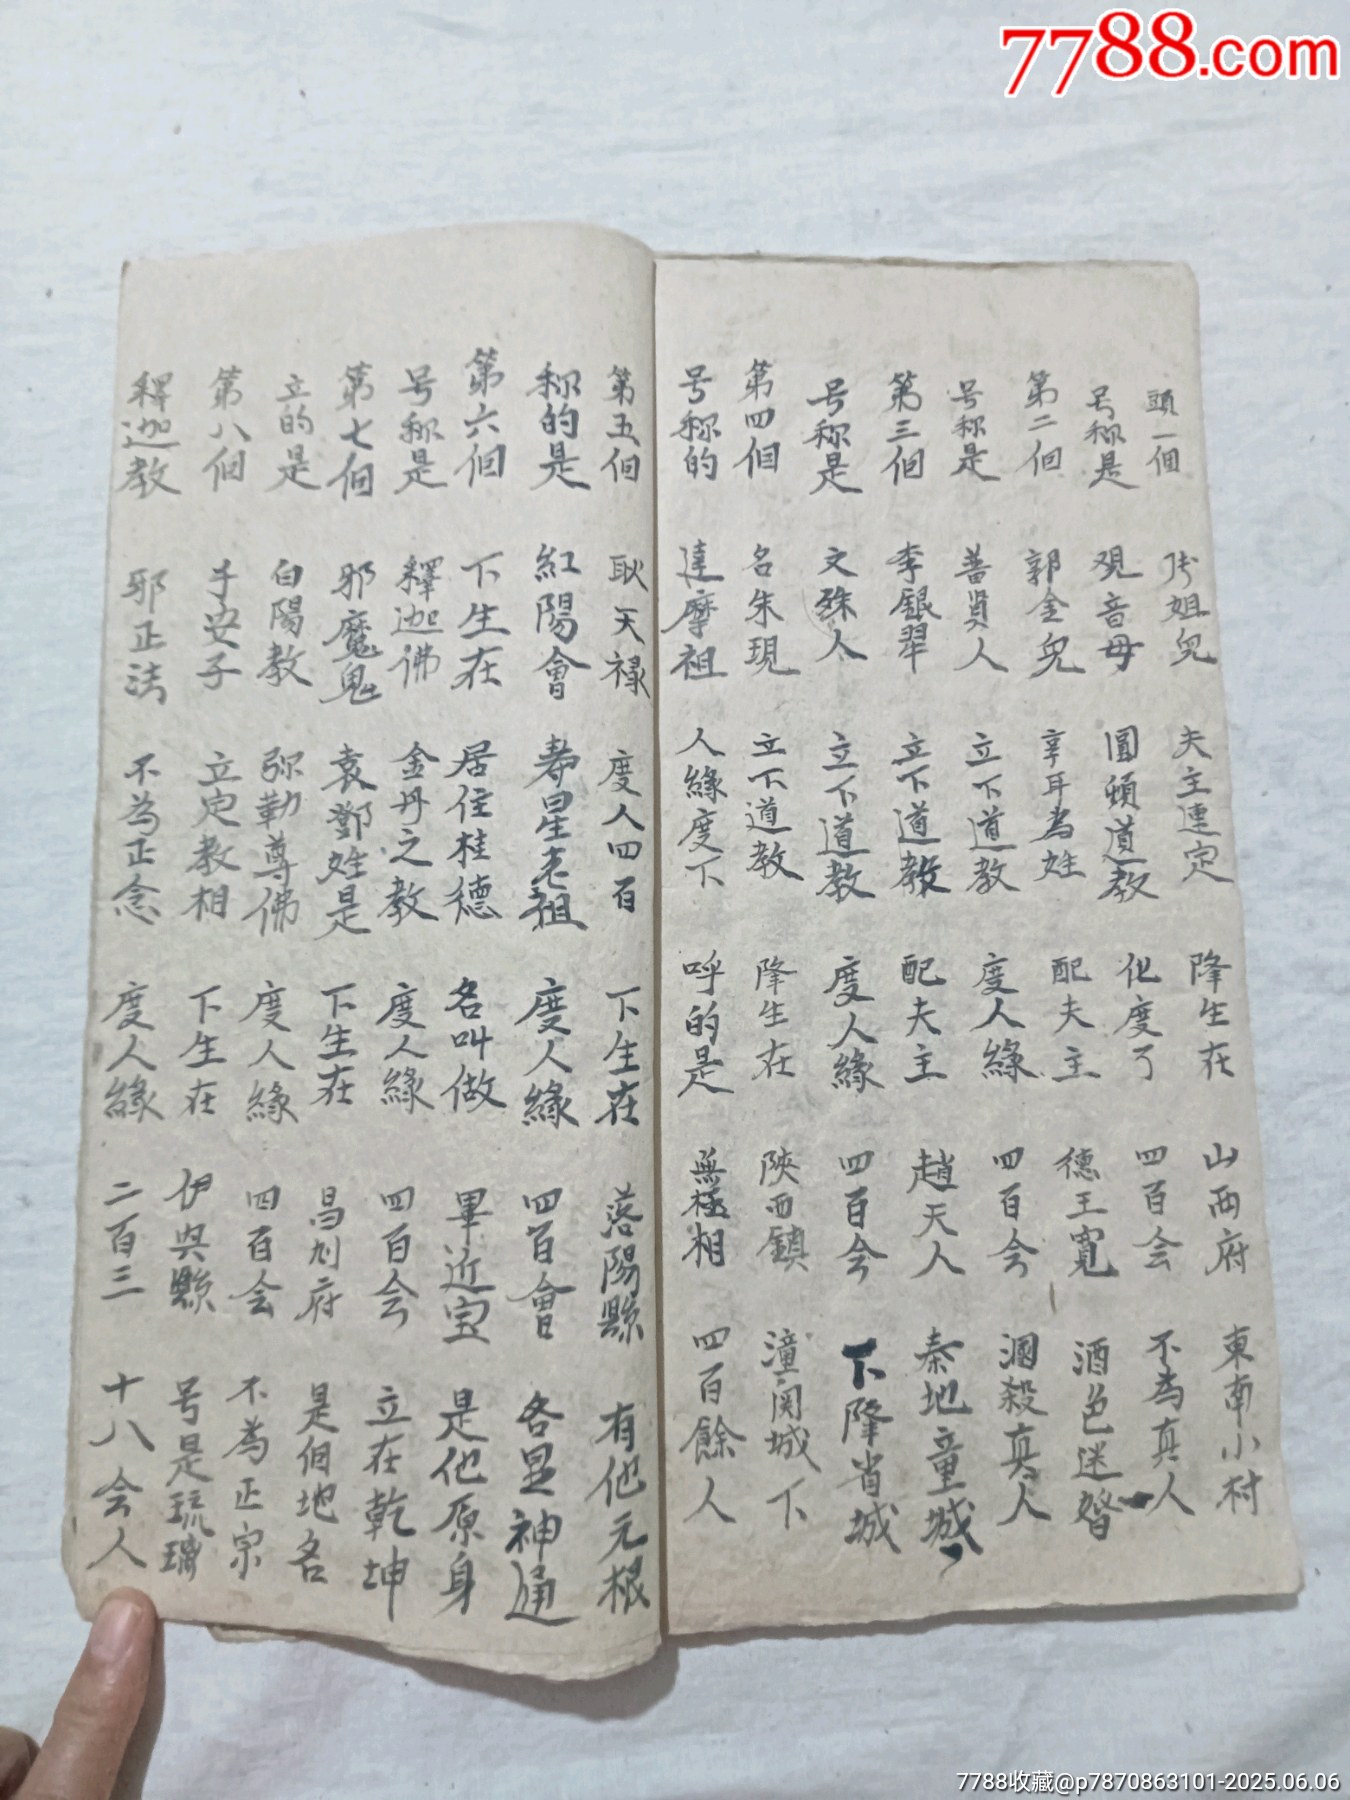 7788.com
頭一個 張姐兒 夫主連定 降生在 山西府 東南小村
号称是 观音母 圓頓道教 化度了 四百会 不為真人
第二個 郭金兒 辛耳為姓 配夫主 德王寬 酒色迷
号称是 普賢人 立下道教 度人緣 四百会 殺真人
第三個 李銀翠 立下道教 配夫主 趙天人 秦地童城
号称是 文殊人 立下道教 度人緣 四百会 下降省城
第四個 名朱現 立下道教 降生在 陝西鎮 潼関城下
号称的 達摩祖 人緣度下 呼的是 無極相 四百餘人
第五個 耿天禄 度人四百 下生在 落陽縣 有他元根
称的是 紅陽會 寿星老祖 度人緣 四百會 各显神通
第六個 下生在 居住桂德 名叫做 畢近宝 是他原身
号称是 釋迦佛 金丹之教 度人緣 四百会 立在乾坤
第七個 邪魔鬼 袁鄧姓是 下生在 昌刘府 是個地名
立的是 白陽教 弥勒尊佛 度人緣 四百会 不為正宗
第八個 手安子 立定教相 下生在 伊县縣 号是琉璃
釋迦教 邪正法 不為正念 度人緣 二百三 十八会人
7788收藏@p7870863101-2025.06.06